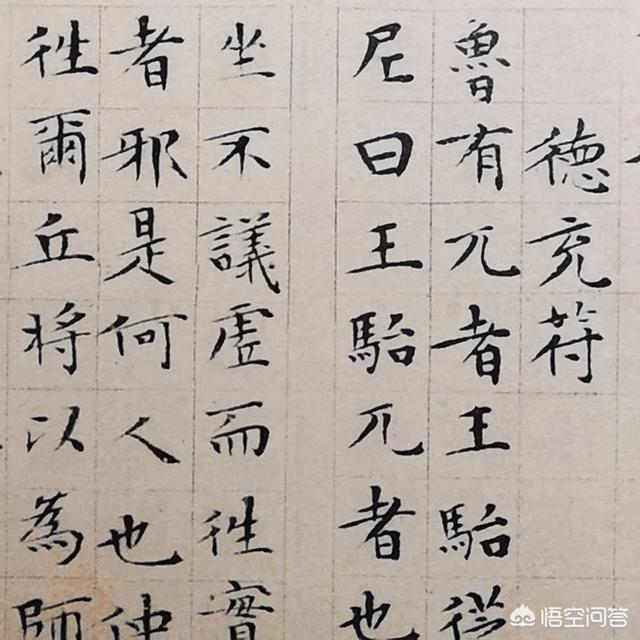 德充符
魯有兀者王駘從
尼曰王駘兀者也
坐不議虛而徃實
者邪是何人也仲
徃爾丘將以為師
悟空问答